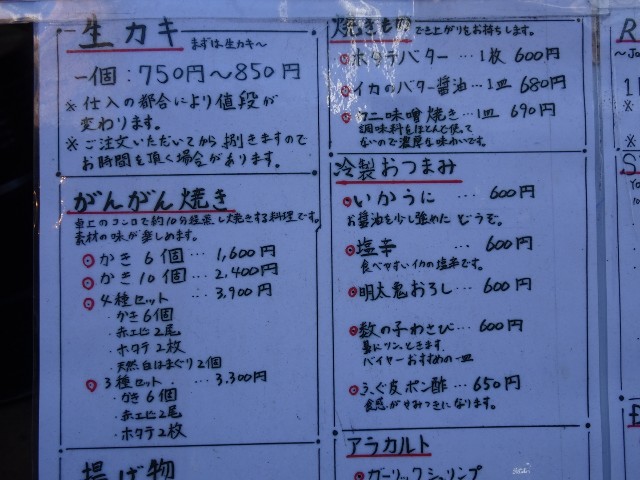 生カキ まずは生カキ〜
一個：750円〜850円
※仕入の都合により値段が
変わります。
※ご注文いただいてから剥きますので
お時間を頂く場合があります。
がんがん焼き
卓上のコンロで約10分蒸し焼きする料理です。
素材の味が楽しめます。
かき6個…1,600円
かき10個…2,400円
4種セット…3,900円
・かき6個
・赤エビ2尾
・ホタテ2枚
・天然白はまぐり2個
3種セット…3,300円
・かき6個
・赤エビ2尾
・ホタテ2枚
揚げ物
焼きもの でき上がりをお待ちします。
ホタテバター…1枚 600円
イカのバター醤油…1皿 680円
カニ味噌焼き…1皿 690円
調味料をほとんど使って
ないので濃厚な味わいです。
冷製おつまみ
いかうに…600円
お醤油を少し強めた どうぞ。
塩辛…600円
食べやすいイカの塩辛です。
明太鬼おろし…600円
数の子わさび…600円
鼻にツンときます
バイヤーおすすめの一皿
ふぐ皮ポン酢…650円
食感がやみつきになります。
アラカルト
ガーリックシュリンプ